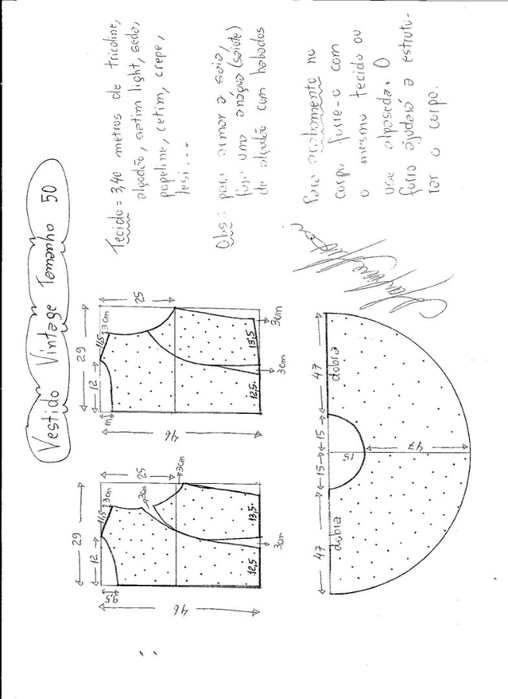 Vestido Vintage Tamanho 50
Tecido = 3,40 metros de tricoline,
algodão, cetim light, seda,
popeline, cetim, crepe,
lesi...
Obs: para armar a saia,
faça uma anágua (saiote)
de algodão com babados
Para acabamento no
corpo forre-o com
o mesmo tecido ou
use
forro ajudará a estrutu-
rar o corpo.
29
12
11,5
3cm
3cm
25
3cm
9,5
12,5
13,5
3cm
46
29
12
11,5
3cm
25
12,5
13,5
3cm
3cm
46
47
15
15
47
dobra
15
dobra
47